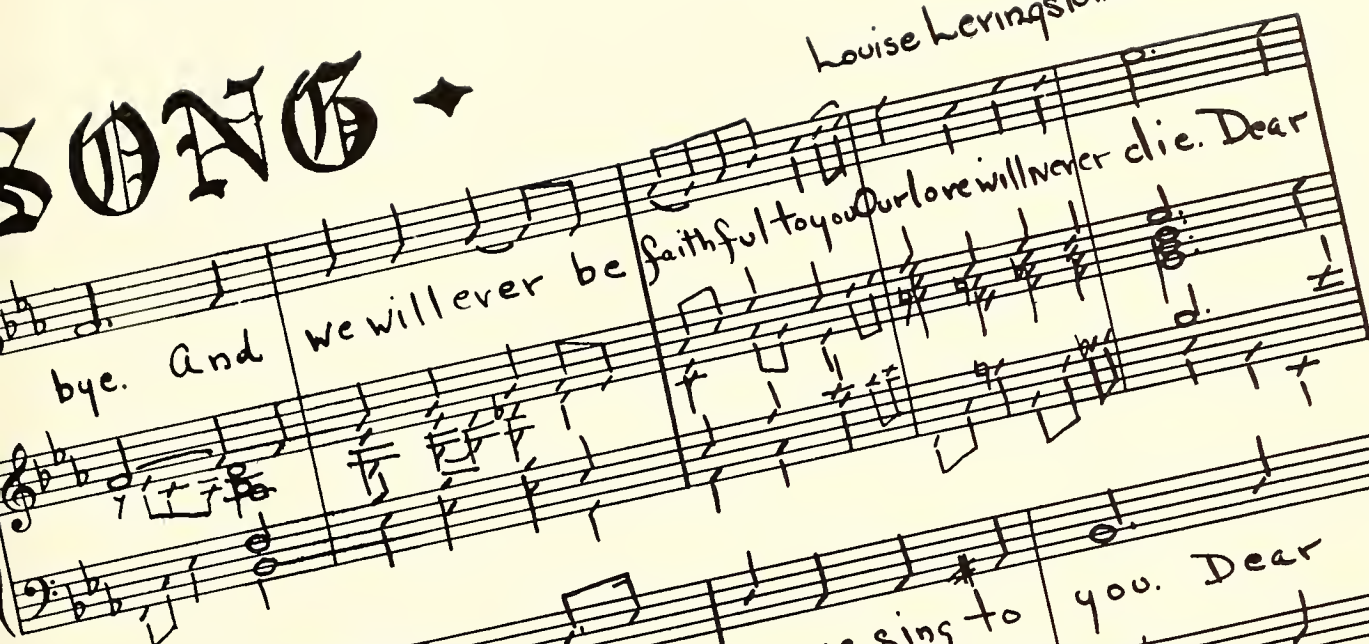 SONG
Louise
bye. And we will ever be faithful to you Our love will Never die. Dear
sing to you. Dear